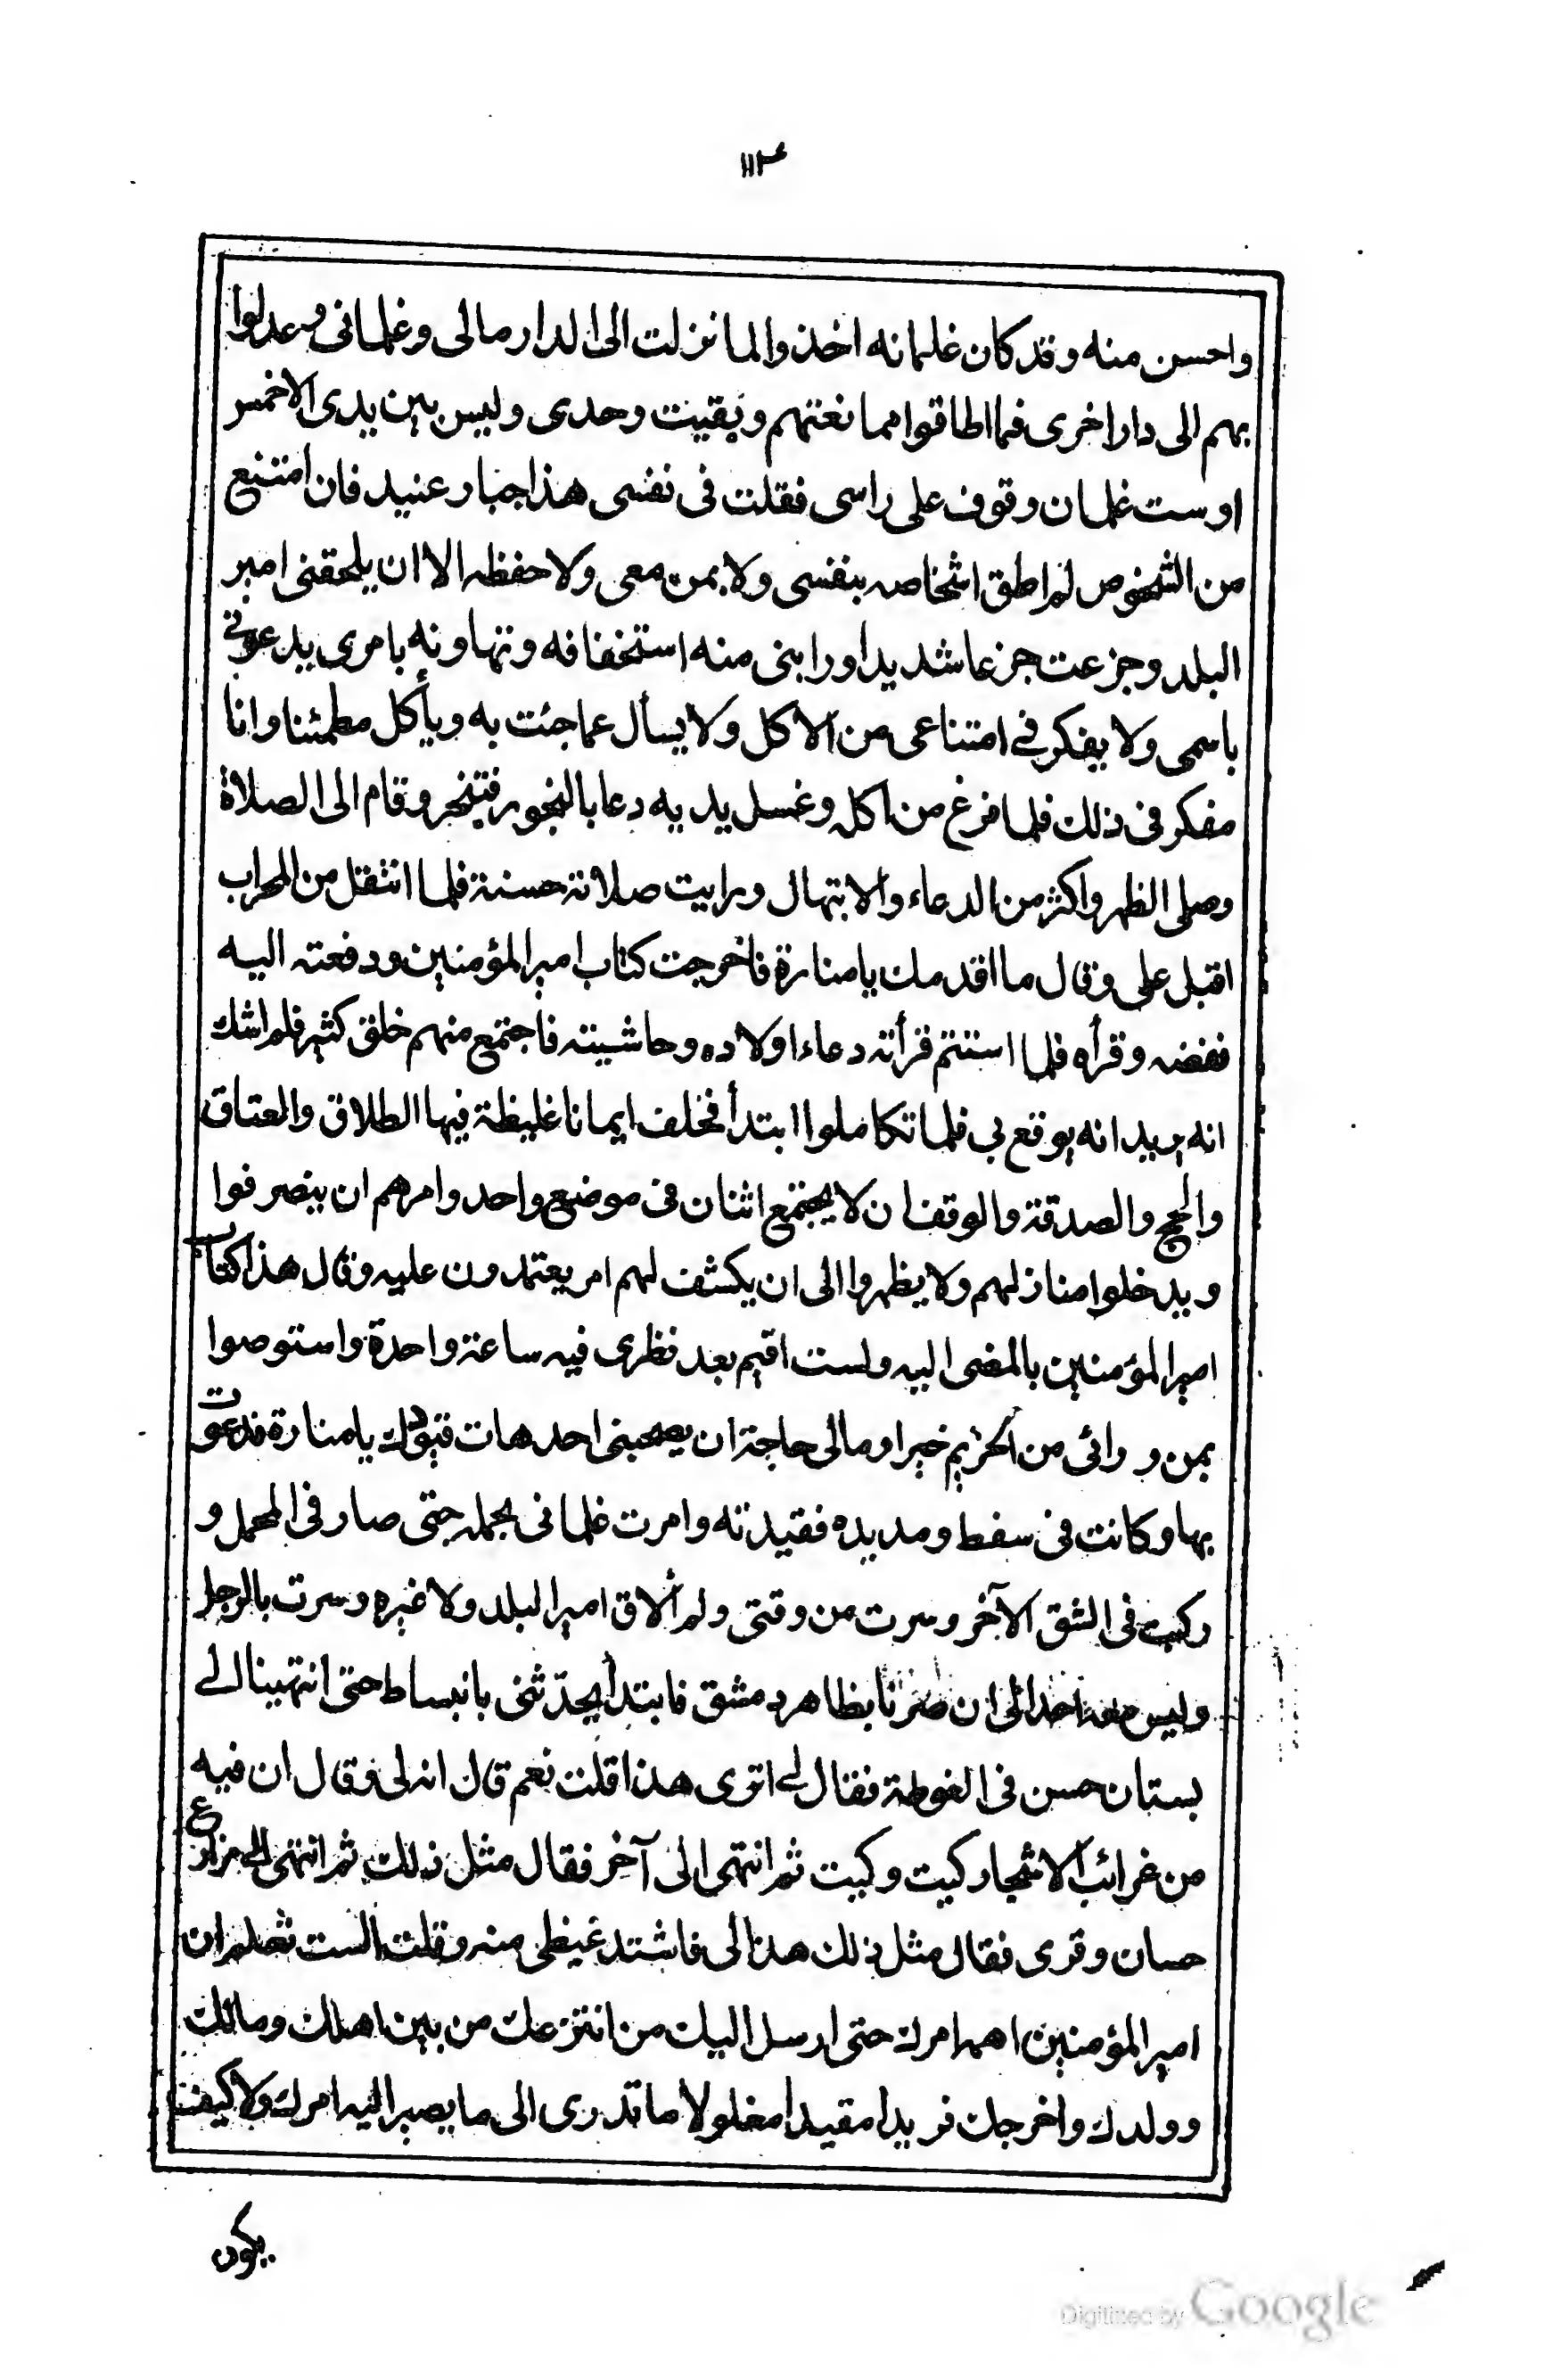 ١١٣
واحسن منه وقد كان غلمانه اخذوا لما نزلت الى الدار مالى وغلمانى وعدلوا
بهم الى دار اخرى فما اطاقوا ممانعتهم وبقيت وحدى وليس بين يدى الا خمس
او ست غلمان وقوف على راسى فقلت فى نفسى هذا جبار عنيد فان امتنع
من الشخوص لم اطق اشخاصه بنفسى ولا بمن معى ولا حفظه الا ان يلحقنى امير
البلد وجزعت جزعا شديدا ورابنى منه استخفافه وتهاونه بامرى يدعونى
باسمى ولا يفكر فى امتناعى من الاكل ولا يسأل عما جئت به ويأكل مطمئنا وانا
مفكر فى ذلك فلما فرغ من اكله وغسل يديه دعا بالبخور فتبخر وقام الى الصلاة
وصلى الظهر واكثر من الدعاء والابتهال ورايت صلاته حسنة فلما انتقل من المحراب
اقبل على وقال ما اقدمك يا منارة فاخرجت كتاب امير المؤمنين ودفعته اليه
ففضه وقرأه فلما استتم قرأته دعا اولاده وحاشيته فاجتمع منهم خلق كثير فلم اشك
انه يريد انه يوقع بى فلما تكاملوا ابتدأ فحلف ايمانا غليظة فيها الطلاق والعتاق
والحج والصدقة والوقف ان لا يجتمع اثنان فى موضع واحد وامرهم ان ينصرفوا
ويدخلوا منازلهم ولا يظهروا الى ان يكشف لهم امر يعتمدون عليه وقال هذا كتاب
امير المؤمنين بالمضى اليه ولست اقيم بعد نظرى فيه ساعة واحدة واستوصوا
بمن ورائى من الحريم خيرا ومالى حاجة ان يصحبنى احد هات قيودك يا منارة فدعوت
بها وكانت فى سفط ومد يده فقيدته وامرت غلمانى بحمله حتى صار فى المحمل و
ركبت فى الشق الآخر وسرت من وقتى ولم ألاق امير البلد ولا غيره وسرت بالرجل
وليس معه احد الى ان صرنا بظاهر دمشق فابتدأ يحدثنى بانبساط حتى انتهينا الى
بستان حسن فى الغوطة فقال لى اترى هذا قلت نعم قال انه لى وقال ان فيه
من غرائب الاشجار كيت وكيت ثم انتهى الى آخر فقال مثل ذلك ثم انتهى الى مزارع
حسان وقرى فقال مثل ذلك هذا لى فاشتد غيظى منه وقلت الست تعلم ان
امير المؤمنين اهمه امرك حتى ارسل اليك من انتزعك من بين اهلك ومالك
وولدك واخرجك فريدا مقيدا مغلولا ما تدرى الى ما يصير اليه امرك ولا كيف
يكون
Digitized by Google